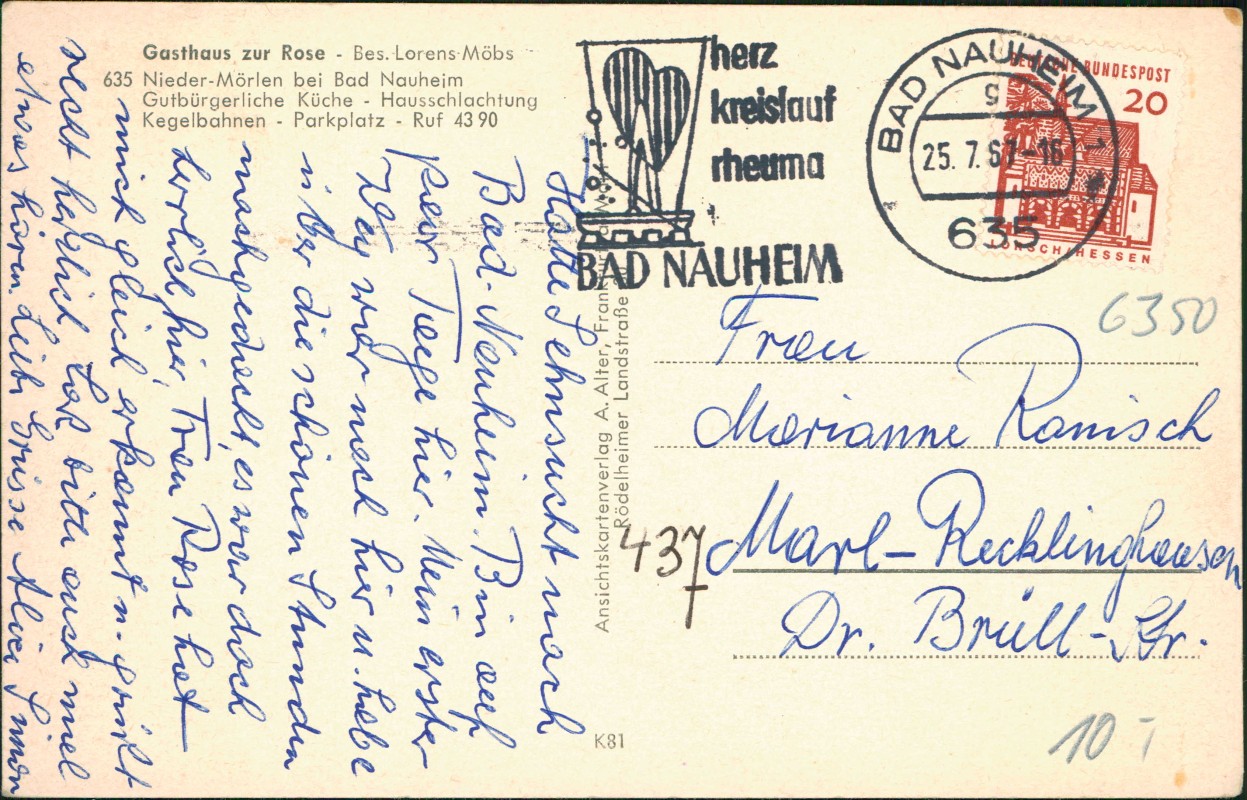 Gasthaus zur Rose - Bes. Lorens Möbs
635 Nieder-Mörlen bei Bad Nauheim
Gutbürgerliche Küche - Hausschlachtung
Kegelbahnen - Parkplatz - Ruf 43 90
herz
kreislauf
rheuma
BAD NAUHEIM
BAD NAUHEIM 1
g
25. 7. 67-16
635
DEUTSCHE BUNDESPOST
20
LORSCH/HESSEN
Hatte Sehnsucht nach
Bad-Nauheim. Bin auf
paar Tage hier. Mein erster
Weg war nach hier u. habe
über die schönen Stunden
nachgedacht, es war doch
herrlich hier, Frau Rose hat
mich gleich erkannt u. grüßt
recht herzlich. Laß bitte auch mal
etwas hören. Liebe Grüsse Alice Simon
Ansichtskartenverlag A. Alter, Frankfurt
Rödelheimer Landstraße
K81
6350
Frau
Marianne Ranisch
437 Marl-Recklinghausen
Dr. Brüll-Str.
10